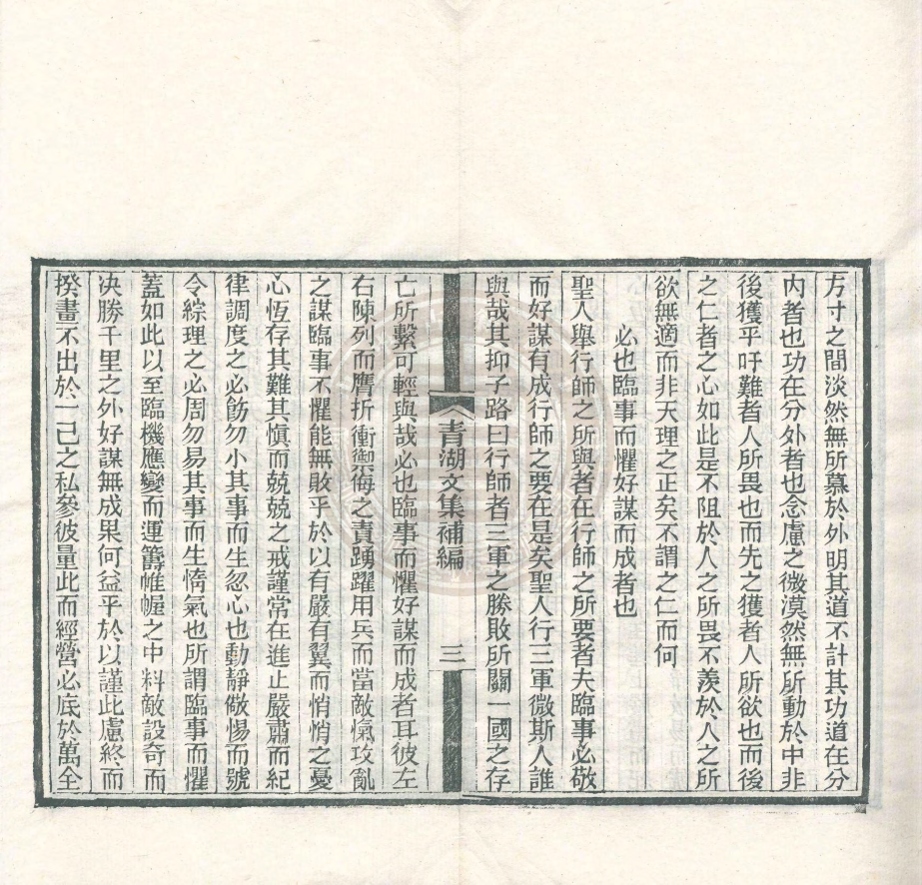 方寸之間淡然無所慕於外明其道不計其功道在分
內者也功在分外者也念慮之微漠然無所動於中非
後獲乎吁難者人所畏也而先之獲者人所欲也而後
之仁者之心如此是不阻於人之所畏不羨於人之所
欲無適而非天理之正矣不謂之仁而何
必也臨事而懼好謀而成者也
聖人舉行師之所與者在行師之所要者夫臨事必敬
而好謀有成行師之要在是矣聖人行三軍微斯人誰
與哉其抑子路曰行師者三軍之勝敗所關一國之存
青湖文集補編 三
亡所繫可輕與哉必也臨事而懼好謀而成者耳彼左
右陳列而膺折衝禦侮之責踴躍用兵而當敵愾攻亂
之謀臨事不懼能無敗乎於以有嚴有翼而悄悄之憂
心恆存其難其慎而兢兢之戒謹常在進止嚴肅而紀
律調度之必飭勿小其事而生忽心也動靜敬惕而號
令綜理之必周勿易其事而生惰氣也所謂臨事而懼
蓋如此以至臨機應變而運籌帷幄之中料敵設奇而
決勝千里之外好謀無成果何益乎於以謹此慮終而
揆畫不出於一己之私參彼量此而經營必底於萬全